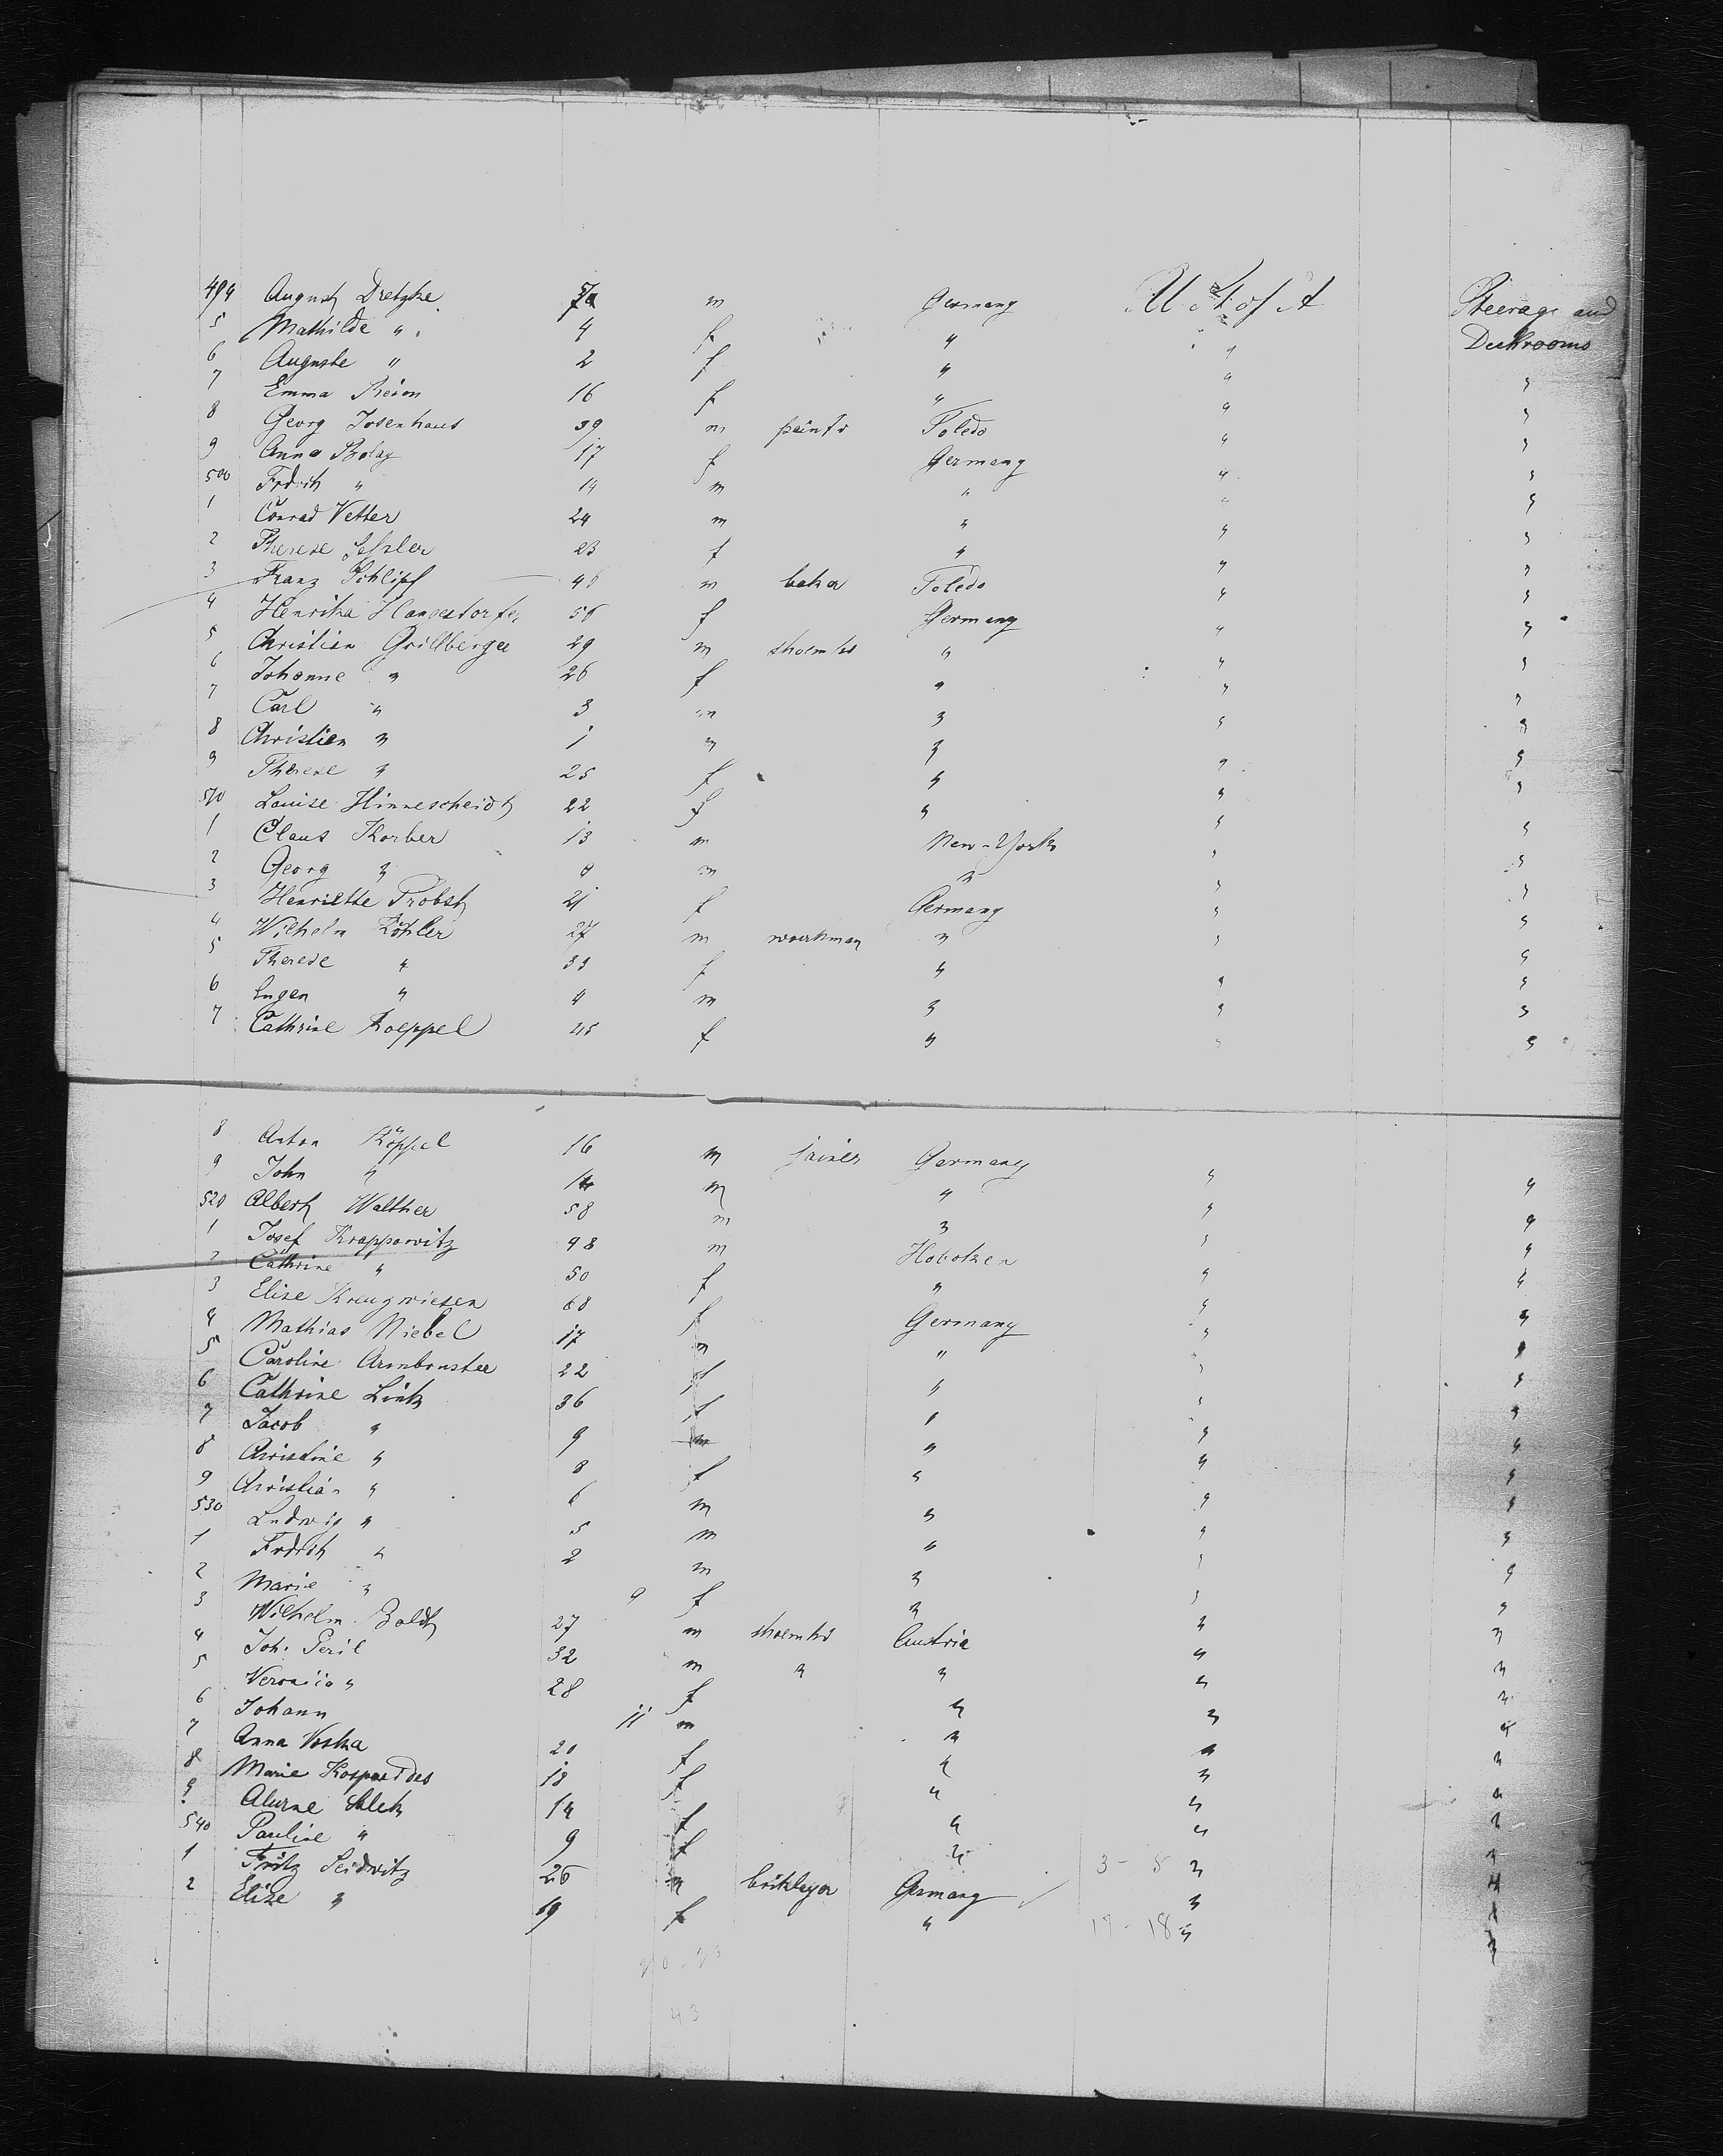 494 August Dretzke m Germany U St of A Steerage and
5 Mathilde " 4 f " " Deckrooms
6 Auguste " 2 f " " "
7 Emma 16 f " " "
8 Georg Josenhaus 39 m painter Toledo " "
9 Anna 17 f Germany " "
500 Frdrch " 14 m " " "
1 Conrad Vetter 24 m " " "
2 Therese 23 f " " "
3 Franz Schlipf 46 m baker Toledo " "
4 Henrika 56 f Germany " "
5 Christian Grillberger 29 m shoemkr " " "
6 Johanne " 26 f " " "
7 Carl " 3 m " " "
8 Christian " 1 m " " "
9 Therese " 25 f " " "
510 Louise Hinnescheidt 22 f " " "
1 Claus Korber 13 m New-York " "
2 Georg " m " " "
3 Henriette Probst 21 f Germany " "
4 Wilhelm Köhler 27 m workman " " "
5 Therese " 33 f " " "
6 Eugen " 4 m " " "
7 Cathrine Koeppel 45 f " " "
8 Anton Köppel 16 m joiner Germany " "
9 John " 14 m " " "
520 Albert Walther 58 m " " "
1 Josef Krappowitz 48 m Hoboken " "
2 Cathrine " 50 f " " "
3 Elise Kreuzwiesen 68 f Germany " "
4 Mathias Niebel 17 m " " "
5 Caroline Armbruster 22 f " " "
6 Cathrine Link 36 f " " "
7 Jacob " 9 m " " "
8 Christine " 8 f " " "
9 Christian " 6 m " " "
530 Ludwig " 5 m " " "
1 Frdrch " 2 m " " "
2 Marie " 9 f " " "
3 Wilhelm Boldt 27 m shoemkr Austria " "
4 Joh. Peril 32 m " " " "
5 Veronica " 28 f " " "
6 Johann 11 m " " "
7 Anna Voska 20 f " " "
8 Marie 18 f " " "
9 14 f " " "
540 Pauline " 9 f " " "
1 Fritz Seidwitz 26 m bricklayer Germany 3 - 5 " "
2 Elise " 19 f " 19 - 18 " "
20 - 23
43